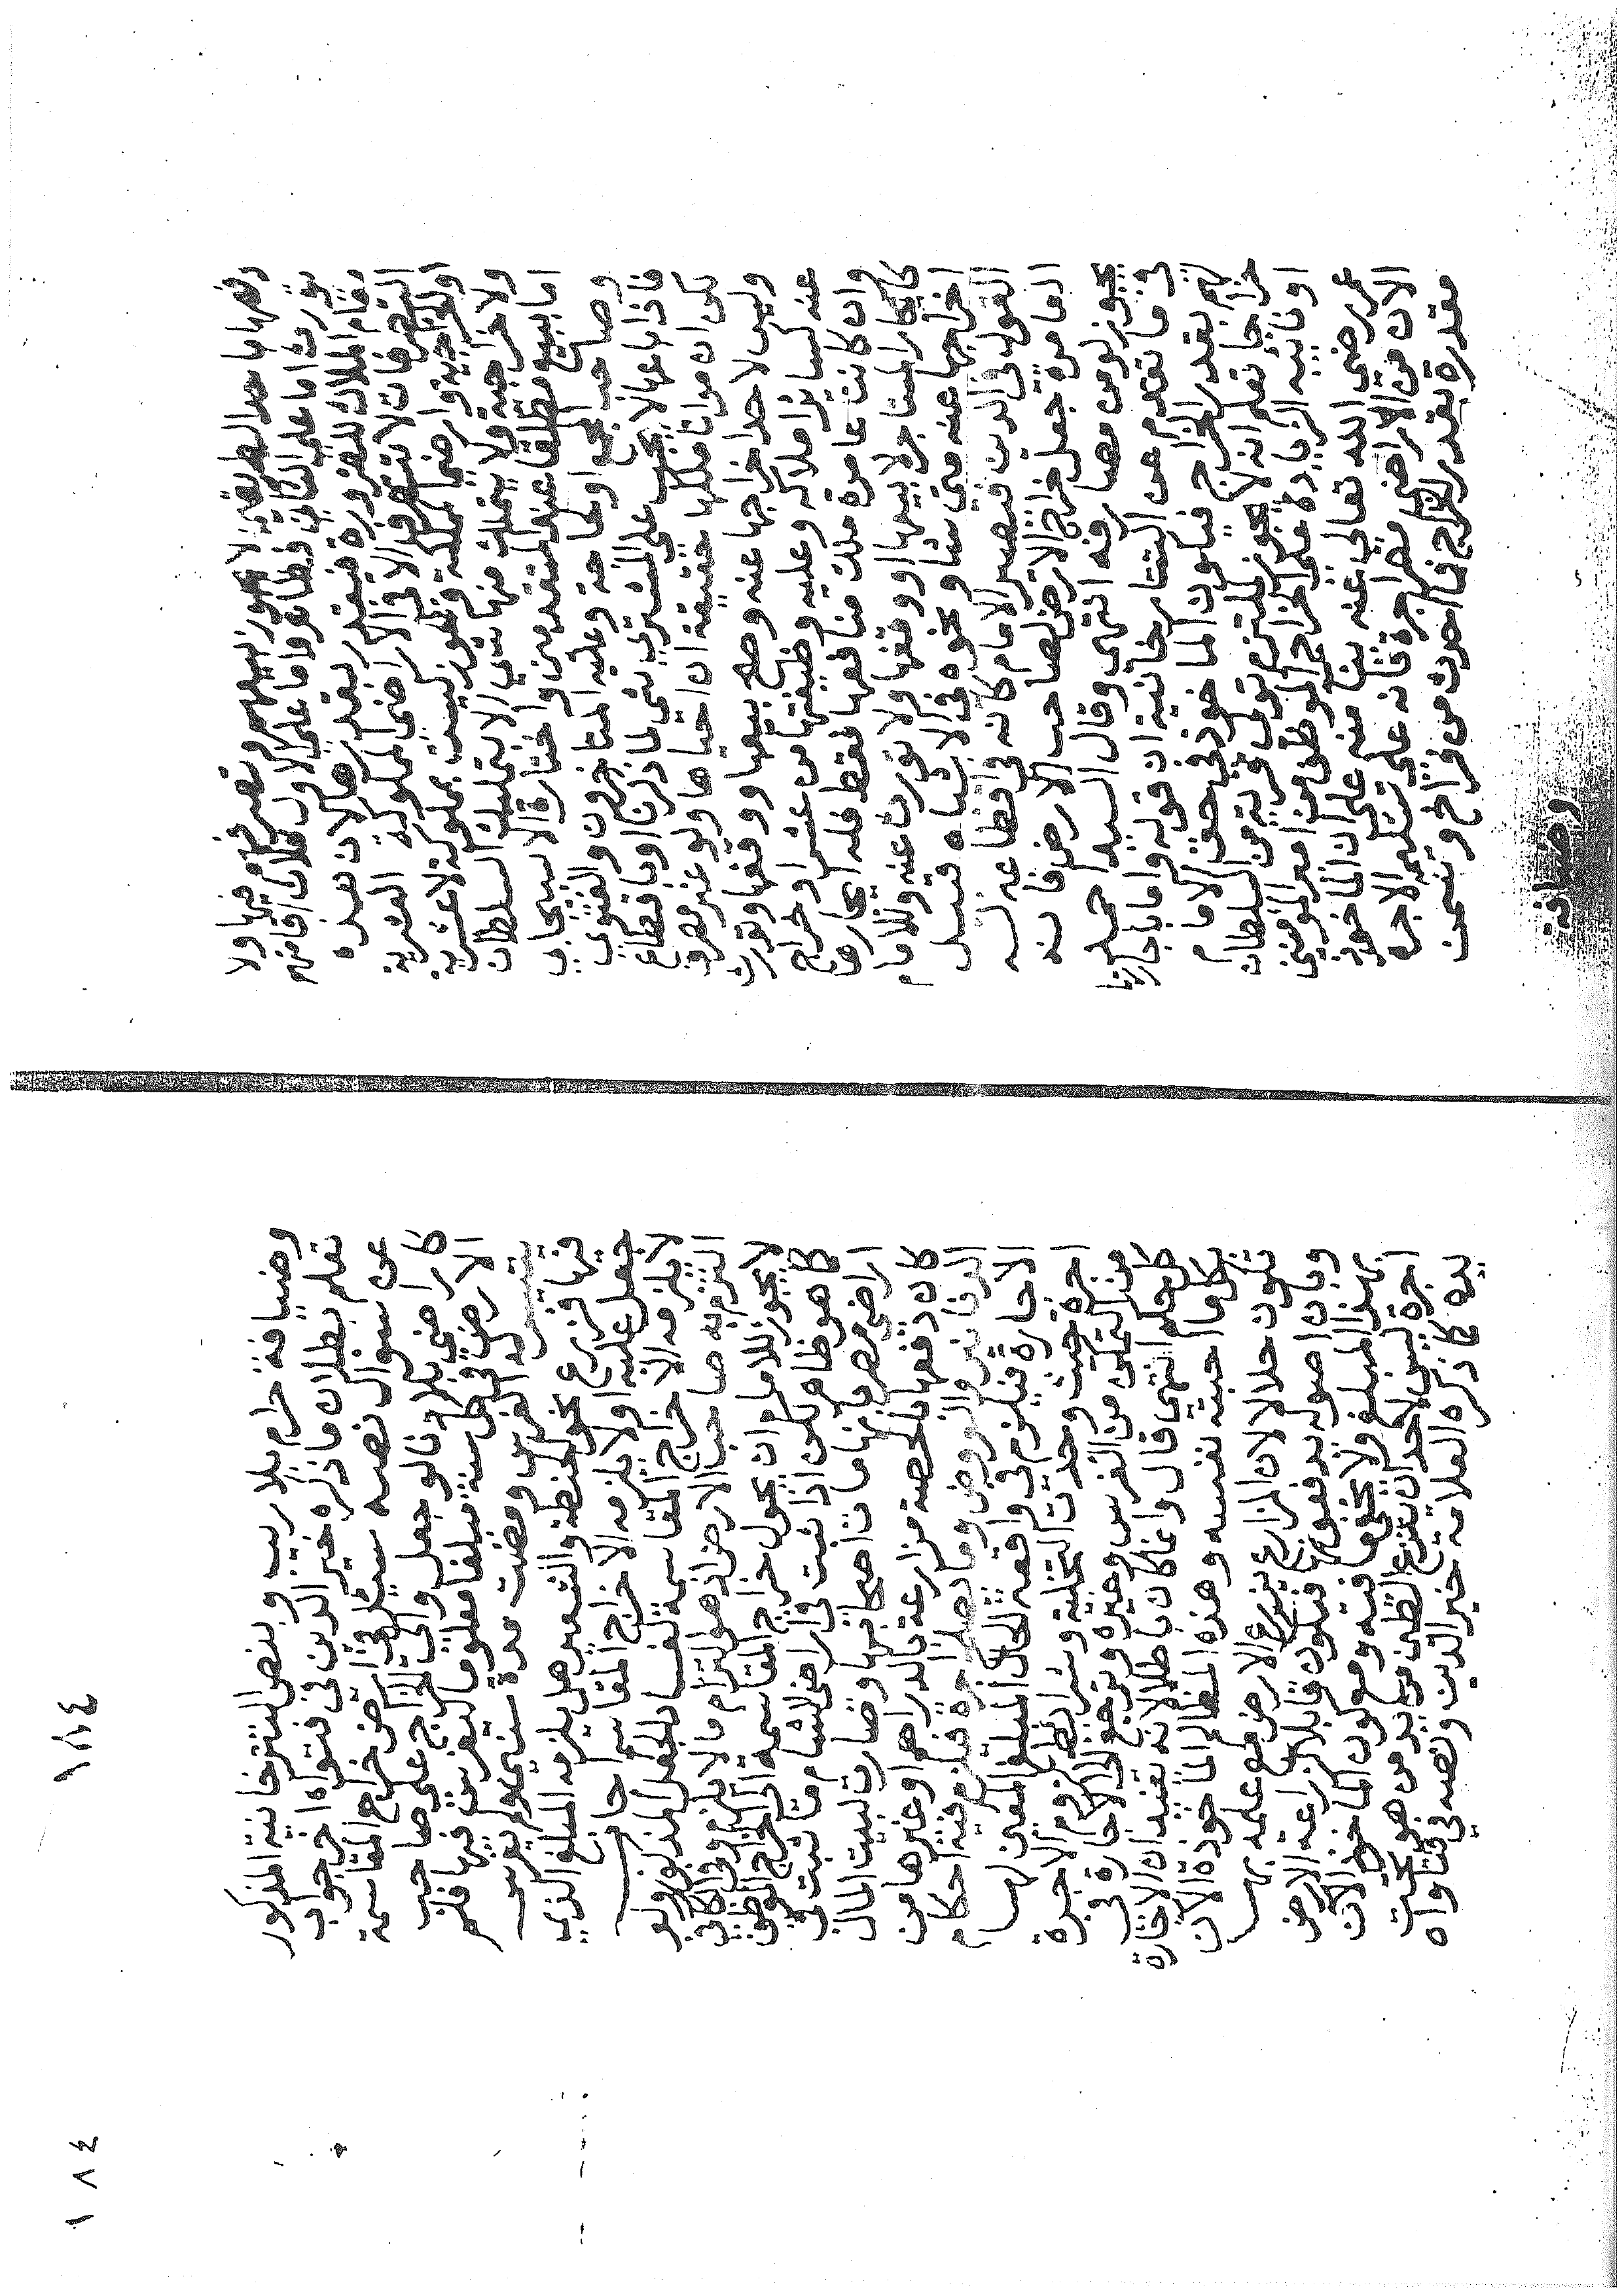 تصرفها باحد الطريقين لا يجوز بيعهم وتصرفهم فيها ولا
تورث اما على الثاني فظاهر واما على الاول فلان اقامتهم
مقام الملاك للضرورة فيتقدر بقدرها لان هذه
التصرفات لا تتصور الا في الاراضي المملوكة العشرية
والخراجية واراضي المملكة والحوز ليست بمملوكة لا عشرية
ولا خراجية ولا يتملك منها شي الا بتمليك السلطان
اما ببيع مطلقا عند المتقدمين واختاره الاسبيجابي
وصاحب المجمع او لحاجة وعليه المتاخرون والفتوى
فاذا باعها لا يجب على المشتري شي لما ذكرنا او باقطاع
لكن ان مواتا ملكها حقيقة ان احياها ولو غير مصرف
وليس لاحد اخراجها عنه وصح بيعها ووقفها وتورث
عنه كسائر املاكه وعليه وظيفتها من عشر او خراج
وان كانت عامرة ملك منافعها فقط فله ايجارها
كايجار المستاجر لا بيعها ووقفها ولا تورث عنه وللامام
اخراجها عنه متى شا ونحوه في الاشباه قبيل
القول في الدين فيصير الامام كانه اقطاعه له
اما من جعل خراج الارض لصاحب الارض فانه
يجوز لو من مصارفه انتهى وقال السيد احمد
في ما تقدم عن التتارخانية ان قوله واما باجارتها
لهم بقدر الخراج فيكون الماخوذ في حق الامام
خراجا تعلم انه لا يجوز لملتزم تولى قرية من السلطان
او نائبه الزيادة على الخراج الموظف من امير المومنين
عمر رضي الله تعالى عنه بنا منه على ان الماخوذ
الان من الاراضي مصر اجرة فانه على تسليم الاجرة
مقدرة بقدر الخراج فما حدث من فراخ وتسمن
وضيافة
١٨٤
وضيافة حرام بلا ريب وبنص التترخانية المذكور
تعلم بطلان ما ذكره خير الدين في فتواه اخر جواب
عن سوال نصه سيل في ارض خراج المقاسمة
كاراضي بلادنا لو جعل والى الخراج على صاحب
الارض في كل سنة مبلغا معلوما ليغرس فيها فلم
يتيسر له الغرس ومضت مدة سنين ولم يغرس
فيها فزرع نحو الحنطة والشعير هل يلزمه المبلغ الذي
جعل عليه اولا يلزمه الا خراج المقاسمة اجاب
لا يلزمه الا خراج المقاسمة لفساد الجعل المذكور ولو
التزم به صاحب الارض اذ هو التزام ما لا يلزم وفي الكافي
لا يجوز للامام ان يحول خراج المقاسمة الى الخراج الموظف
كما هو ظاهر لكن اذا ثبت في اراضي الشام ما ثبت في
اراضي مصر بانها مات اصحابها وصارت لبيت المال
كان دفعها بالحصة مزارعة بالدراهم او غيرها من
الدنانير والعروض وما يصلح اجرة فلزم فيه احكام
الاجارة فيلزم في واقعة الحال المبلغ المعين لها
اجرة حيث وجدت التخلية وشرائط لزوم الاجرة
من التمكن من الغرس وغيره وترجع الى الاجارة في
كل حكم انتهى قال وانما كان باطلا لانه يفيد ان الاجارة
بكل ما احبته نفسه وهذه المظالم الماخوذة الان
تكون حلالا لان المزارع يزرع الارض مع علمه بها
وبان اصوله يدفعونها فيكون قابلا لزراعة الارض
بهذا المبلغ ولا يخفى ما فيه ومع كون الماخوذ الان
اجرة ليس لاحد ان ينزع الطين من يد من هو تحت
يده كما ذكره العلامة خير الدين ونصه في فتاواه
١٨٤